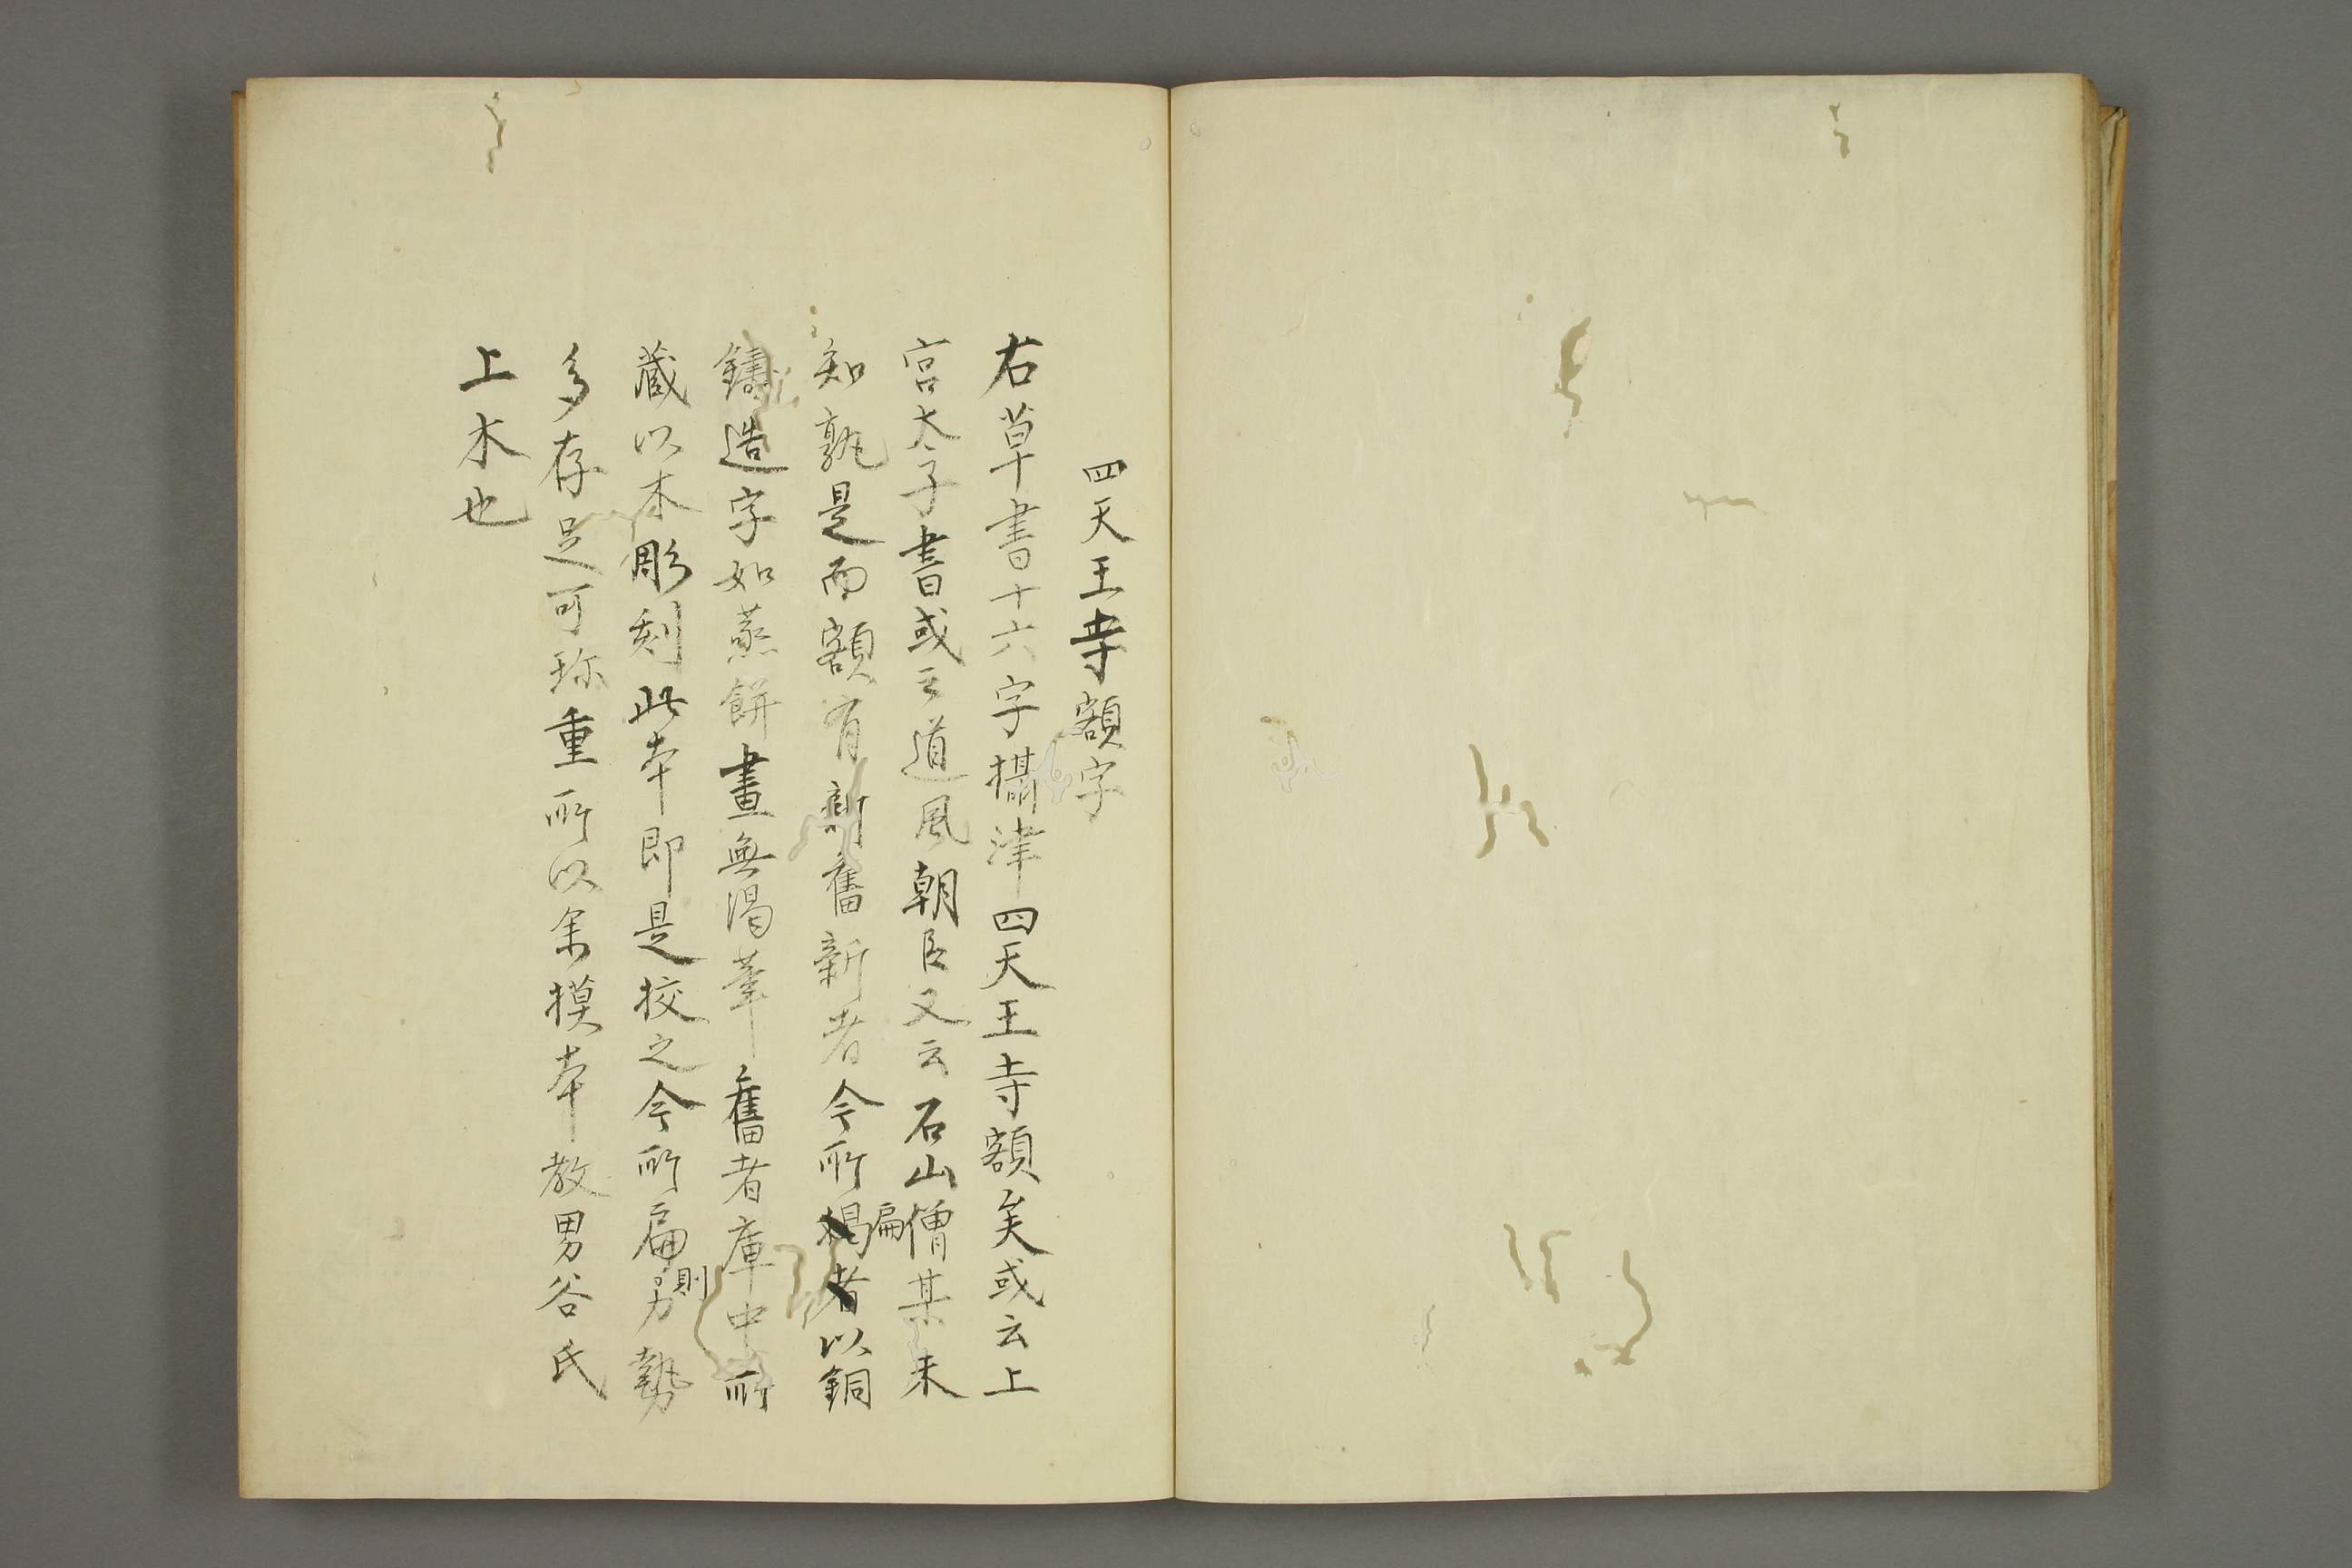 四天王寺額字
右草書十六字攝津四天王寺額矣或云上
宮太子書或云道風朝臣又云石山僧某未
知孰是而額有新舊新者今所揭扁者以銅
鑄造字如蒸餅畫無渴筆舊者庫中所
藏以木彫刻此本即是挍之今所扁則筆勢
多存足可珎重所以余摸本教男谷氏
上木也